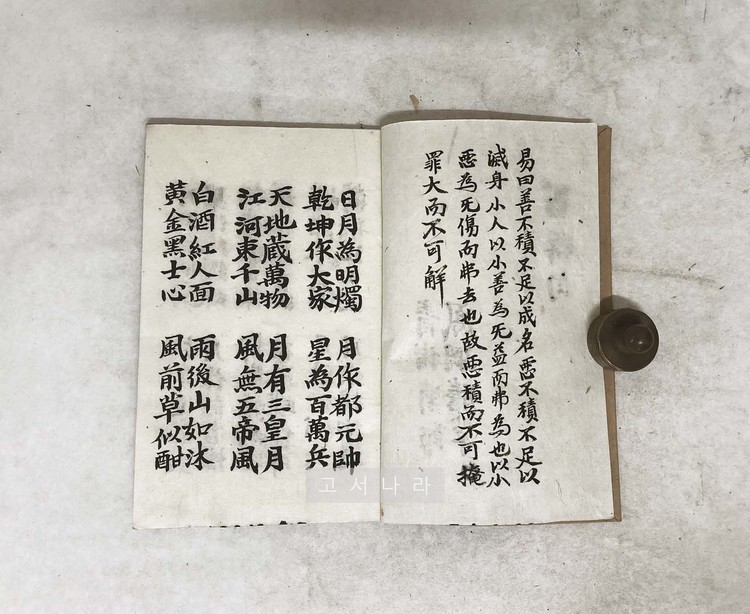 易曰善不積不足以成名惡不積不足以
滅身小人以小善為死益而弗為也以小
惡為死傷而弗去也故惡積而不可掩
罪大而不可解
日月為明燭
乾坤作大家
月作都元帥
星為百萬兵
天地蔵萬物
江河東千山
月有三皇月
風無五帝風
白酒紅人面
黃金黑士心
雨後山如沐
風前草似酣
고서나라